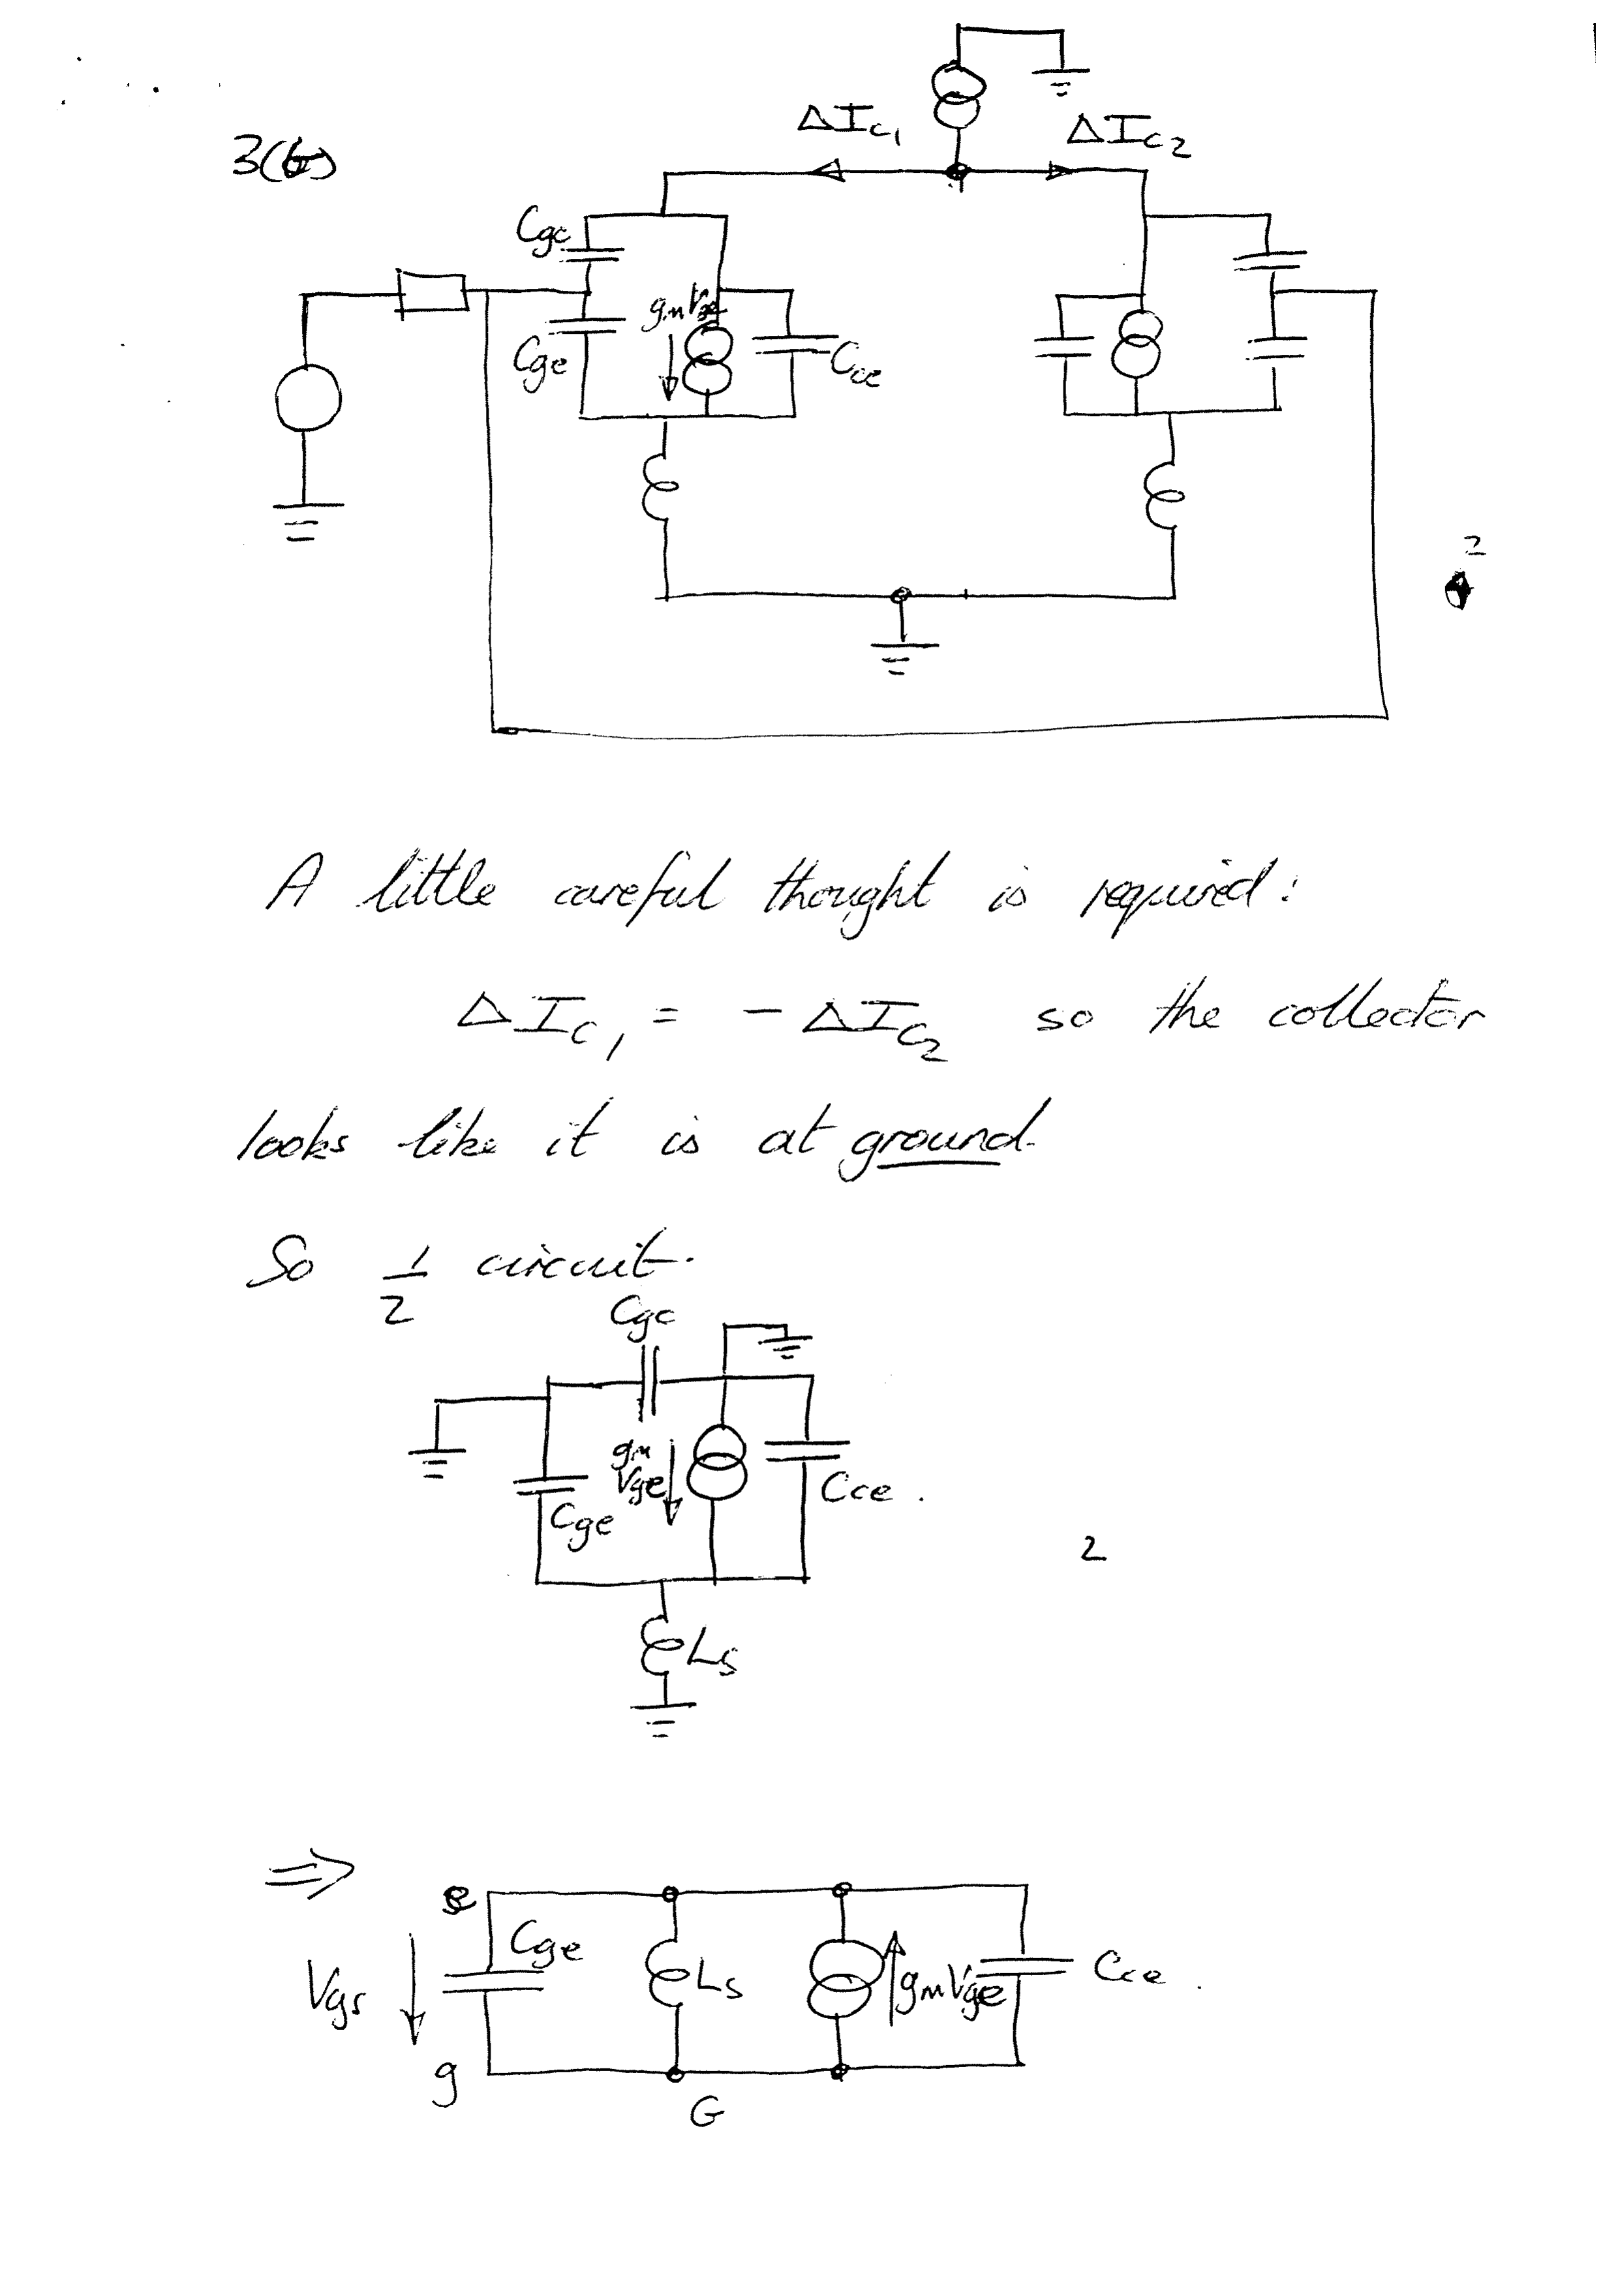 ΔIc1 ΔIc2
3(b)
Cgc
gmVge
Cge Cce
2
A little careful thought is required:
ΔIc1 = - ΔIc2 so the collector
looks like it is at ground.
So 1/2 circuit.
Cgc
gm
Vge
Cce.
Cge
2
Ls
⇒ e
Cge
Vgs Ls gmVge Cce.
g
G